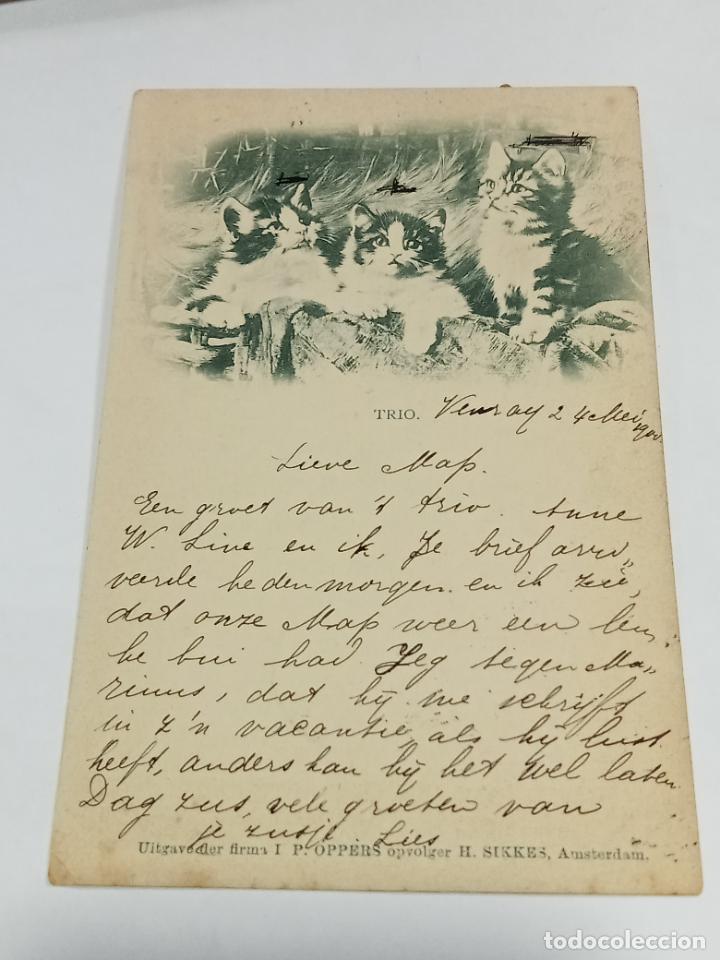 TRIO. Venray 24 Mei 1900.
Lieve Map.
Een groet van 't trio. Anne
W. Line en ik, Je brief arri„
veerde heden morgen en ik zei,
dat onze Map weer een leu„
ke bui had. Zeg tegen Ma„
rinus, dat hij me schrijft
in z'n vacantie, als hij lust
heeft, anders kan hij het wel laten
Dag zus, vele groeten van
je zusje Lies
Uitgave der firma I P. OPPERS opvolger H. SIKKES, Amsterdam.
todocoleccion
todocoleccion.net